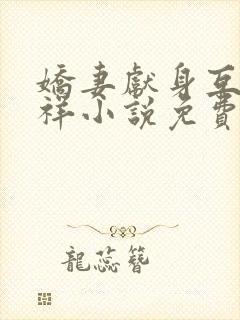 嬌妻獻身互
祥小說免費
龍蕊簪